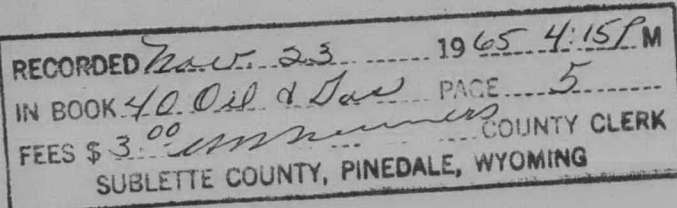 RECORDED Nov. 23 1965 4:15 P M
IN BOOK 40 Oil & Gas PAGE 5
FEES $ 3.00 COUNTY CLERK
SUBLETTE COUNTY, PINEDALE, WYOMING